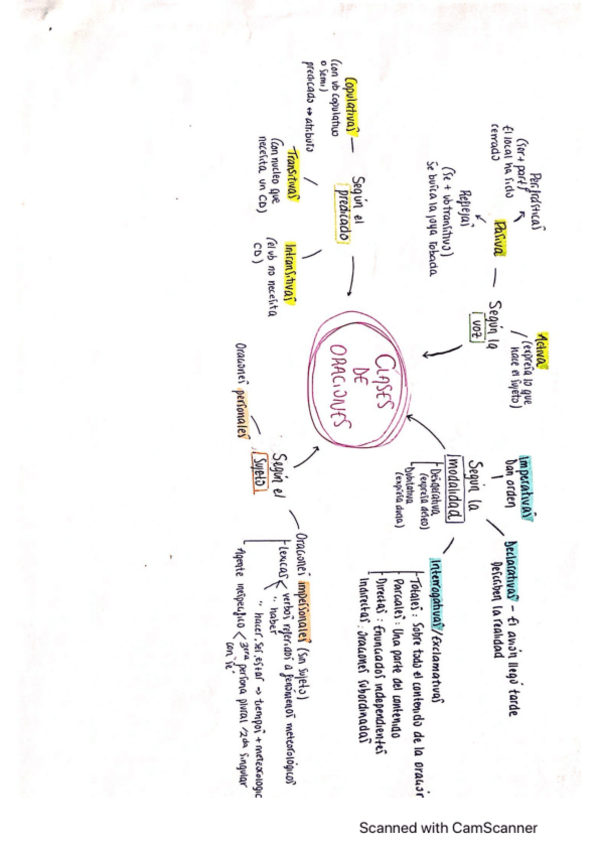 CLASES
DE
ORACIONES
Según la
voz
Activa
(expresa lo que
hace el sujeto)
Pasiva
Perifrásticas
(ser + part)
El local ha sido
cerrado
Reflejas
(se + vb transitivo)
Se busca la joya robada
Según la
modalidad
Imperativas
Dan orden
Declarativas - El avión llegó tarde
Describen la realidad
Interrogativas/Exclamativas
Totales: Sobre todo el contenido de la oración
Parciales: Una parte del contenido
Directas: Enunciados independientes
Indirectas: Oraciones subordinadas
Desiderativa
(expresa deseo)
Dubitativa
(expresa duda)
Según el
predicado
Copulativas
(con vb copulativo
o semi)
predicado → atributo
Transitivas
(con nucleo que
necesita un CD)
Intransitivas
(el vb no necesita
CD)
Según el
sujeto
Oraciones personales
Oraciones impersonales (sin sujeto)
Lexicas < verbos referidos a fenómenos meteorológicos
" haber
" hacer, ser, estar → tiempos + meteorologic
Agente inespecífico < 3era persona plural / 2da singular
con "se"
Scanned with CamScanner